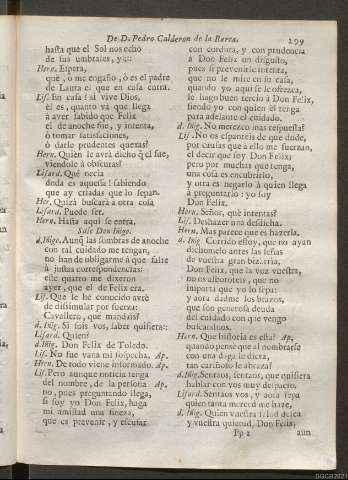 De D. Pedro Calderon de la Barca. 299
hasta que el Sol nos eche
de sus umbrales, y::
Hern. Espera,
què, ò me engaño, ò es el padre
de Laura el que en casa entra.
Lis. En casa? si vive Dios,
èl es, quanto va que llega
à aver sabido que Felix
el de anoche fue, y intenta,
ò tomar satisfaciones,
ò darle prudentes quexas?
Hern. Quien le avrà dicho q̃ el fue,
viendole à obscuras?
Lisard. Què necia
duda es aquessa! sabiendo
que ay criadas que lo sepan.
Her. Quizà buscarà a otra cosa
Lisard. Puede ser.
Hern. Hasta aqui se entra.
Sale Don Iñigo.
d. Iñigo. Aunq̃ las sombras de anoche
con tal cuidado me tengan,
no han de obligarme à que falte
à justas correspondencias:
este quarto me dixeron
ayer, que el de Felix era.
Lis. Que le he conocido avrè
de dissimular por fuerza:
Cavallero, què mandais?
d. Iñig. Si sois vos, saber quisiera::
Lisard. Quien?
d. Iñig. Don Felix de Toledo.
Lis. No fue vana mi sospecha. Ap.
Hern. De todo viene informado. Ap.
Lis. Pero aunque noticia tenga
del nombre, de la persona Ap.
no, pues preguntando llega,
si soy yo Don Felix, haga
mi amistad una fineza,
que es prevenir, y escusar
con cordura, y con prudencia
à Don Felix un disgusto,
pues si prevenirle intenta,
que no le mire en su casa,
quando yo aqui se le ofrezca,
le hago buen tercio à Don Felix,
siendo yo con quien èl tenga
para adelante el cuidado.
d. Iñig. No merezco mas respuesta?
Lis. No os espanteis de que dude,
por causas que à ello me fuerzan,
el decir que soy Don Felix;
pero por muchas que tenga,
una cosa es encubrirlo,
y otra es negarlo à quien llega
à preguntarlo: yo soy
Don Felix.
Hern. Señor, què intentas?
Lis. Deshazer una desdicha.
Hern. Mas parece que es hazerla.
d. Iñig. Corrido estoy, que no ayan
dichomelo antes las señas
de vuestra gran bizarria,
Don Felix, que la voz vuestra,
no os alboroteis, que no
importa que yo lo sepa:
y aora dadme los brazos,
que son generosa deuda
del cuidado con que vengo
buscandoos.
Hern. Que historia es esta? Ap,
quando pensè que al nombrarse
con una daga le diera,
tan cariñoso le abraza?
d. Iñig. Sentaos, sentaos, que quisiera
hablar con vos muy despacio.
Lisard. Sentaos vos, y aora sepa
quien tanta merced me haze,
d. Iñig. Quien vuestra salud desea
y vuestra quietud, Don Felix,
Pp 2 aun